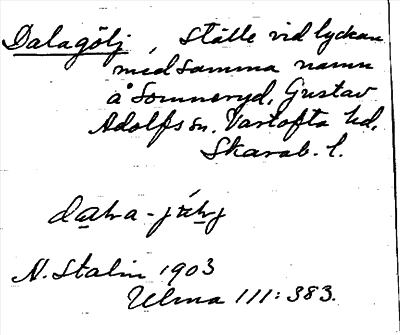 Dalagölj, ställe vid lyckan
med samma namn
å Sommeryd, Gustav
Adolfs sn. Vartofta hd,
Skarab. l.
N. Stalin 1903
Ulma 111:383.